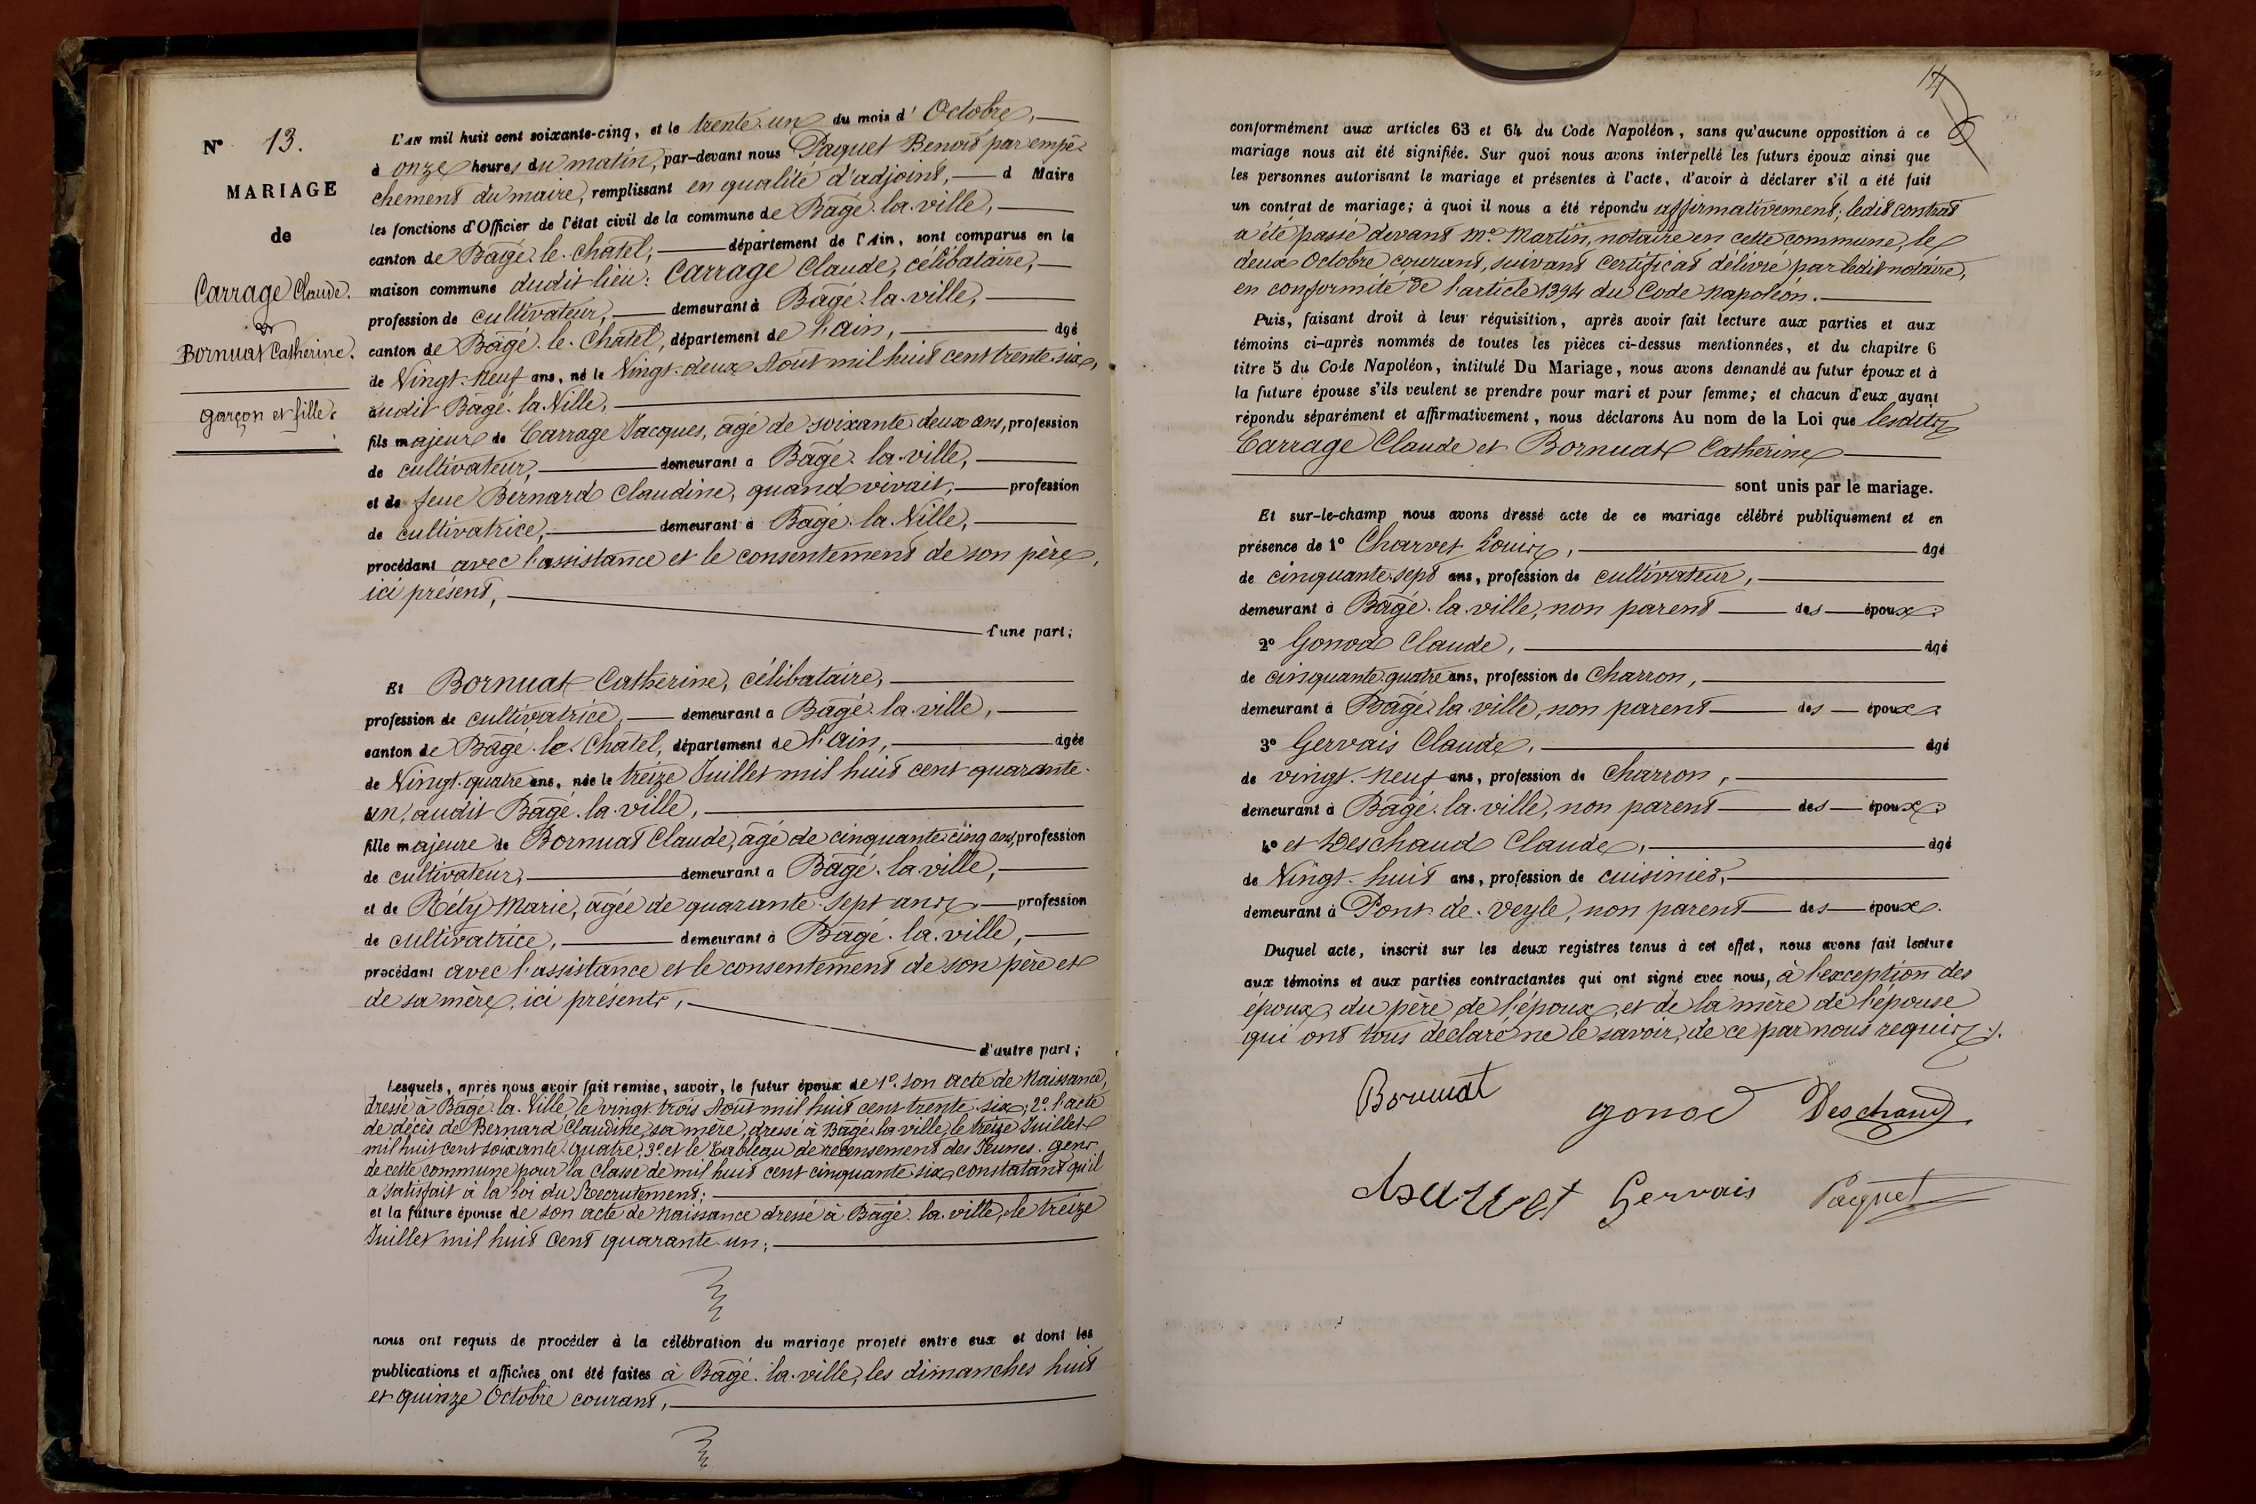 N° 13.
MARIAGE
de
Carrage Claude.
&
Bornuat Catherine.
garçon et fille.
L'AN mil huit cent soixante-cinq, et le trente-un du mois d' Octobre,
à onze heures du matin, par-devant nous Paquet Benoit par empê-
chement du maire, remplissant en qualité d'adjoint, d Maire
les fonctions d'Officier de l'état civil de la commune de Bâgé-la-ville,
canton de Bâgé-le-Châtel, département de l'Ain, sont comparus en la
maison commune dudit lieu: Carrage Claude, célibataire,
profession de cultivateur, demeurant à Bâgé-la-ville,
canton de Bâgé-le-Châtel, département de l'ain, âgé
de Vingt-neuf ans, né le Vingt-deux Août mil huit cent trente-six,
audit Bâgé-la-Ville,
fils majeur de Carrage Jacques, âgé de soixante-deux ans, profession
de cultivateur, demeurant à Bâgé-la-ville,
et de feue Bernard Claudine, quand vivait, profession
de cultivatrice, demeurant à Bâgé-la-Ville,
procédant avec l'assistance et le consentement de son père,
ici présent,
d'une part;
Et Bornuat Catherine, célibataire,
profession de cultivatrice, demeurant à Bâgé-la-ville,
canton de Bâgé-le-Châtel, département de l'Ain, âgée
de Vingt-quatre ans, née le treize Juillet mil huit cent quarante-
un, audit Bâgé-la-ville,
fille majeure de Bornuat Claude, âgé de cinquante-cinq ans, profession
de cultivateur, demeurant à Bâgé-la-ville,
et de Réty Marie, âgée de quarante-sept ans, profession
de cultivatrice, demeurant à Bâgé-la-ville,
procédant avec l'assistance et le consentement de son père et
de sa mère, ici présents,
d'autre part;
Lesquels, après nous avoir fait remise, savoir, le futur époux de 1°. son acte de Naissance,
dressé à Bâgé-la-Ville, le vingt-trois Août mil huit cent trente-six; 2°. l'acte
de décès de Bernard Claudine, sa mère, dressé à Bâgé-la-ville, le treize Juillet
mil huit cent soixante-quatre; 3°. et le Tableau de recensement des Jeunes-gens
de cette commune pour la classe de mil huit cent cinquante-six constatant qu'il
a satisfait à la Loi du Recrutement;
et la future épouse de son acte de Naissance dressé à Bâgé-la-ville, le treize
Juillet mil huit cent quarante-un;
nous ont requis de procéder à la célébration du mariage projeté entre eux et dont les
publications et affiches ont été faites à Bâgé-la-ville, les dimanches huit
et quinze Octobre courant,
14
conformément aux articles 63 et 64 du Code Napoléon, sans qu'aucune opposition à ce
mariage nous ait été signifiée. Sur quoi nous avons interpellé les futurs époux ainsi que
les personnes autorisant le mariage et présentes à l'acte, d'avoir à déclarer s'il a été fait
un contrat de mariage; à quoi il nous a été répondu affirmativement; ledit contrat
a été passé devant Me. Martin, notaire en cette commune, le
deux Octobre courant, suivant certificat délivré par ledit notaire,
en conformité de l'article 1394 du Code Napoléon.
Puis, faisant droit à leur réquisition, après avoir fait lecture aux parties et aux
témoins ci-après nommés de toutes les pièces ci-dessus mentionnées, et du chapitre 6
titre 5 du Code Napoléon, intitulé Du Mariage, nous avons demandé au futur époux et à
la future épouse s'ils veulent se prendre pour mari et pour femme; et chacun d'eux ayant
répondu séparément et affirmativement, nous déclarons Au nom de la Loi que lesdits
Carrage Claude et Bornuat Catherine
sont unis par le mariage.
Et sur-le-champ nous avons dressé acte de ce mariage célébré publiquement et en
présence de 1° Charvet Louis, âgé
de cinquante-sept ans, profession de cultivateur,
demeurant à Bâgé-la-ville, non parent des époux.
2° Gonod Claude, âgé
de cinquante-quatre ans, profession de Charron,
demeurant à Bâgé-la-ville, non parent des époux.
3° Gervais Claude, âgé
de vingt-neuf ans, profession de Charron,
demeurant à Bâgé-la-ville, non parent des époux.
4° et Deschaud Claude, âgé
de Vingt-huit ans, profession de cuisinier,
demeurant à Pont-de-Veyle, non parent des époux.
Duquel acte, inscrit sur les deux registres tenus à cet effet, nous avons fait lecture
aux témoins et aux parties contractantes qui ont signé avec nous, à l'exception des
époux, du père de l'époux, et de la mère de l'épouse
qui ont tous déclaré ne le savoir, de ce par nous requis.
Bornuat
gonod Deschaud
charvet Gervais Paquet